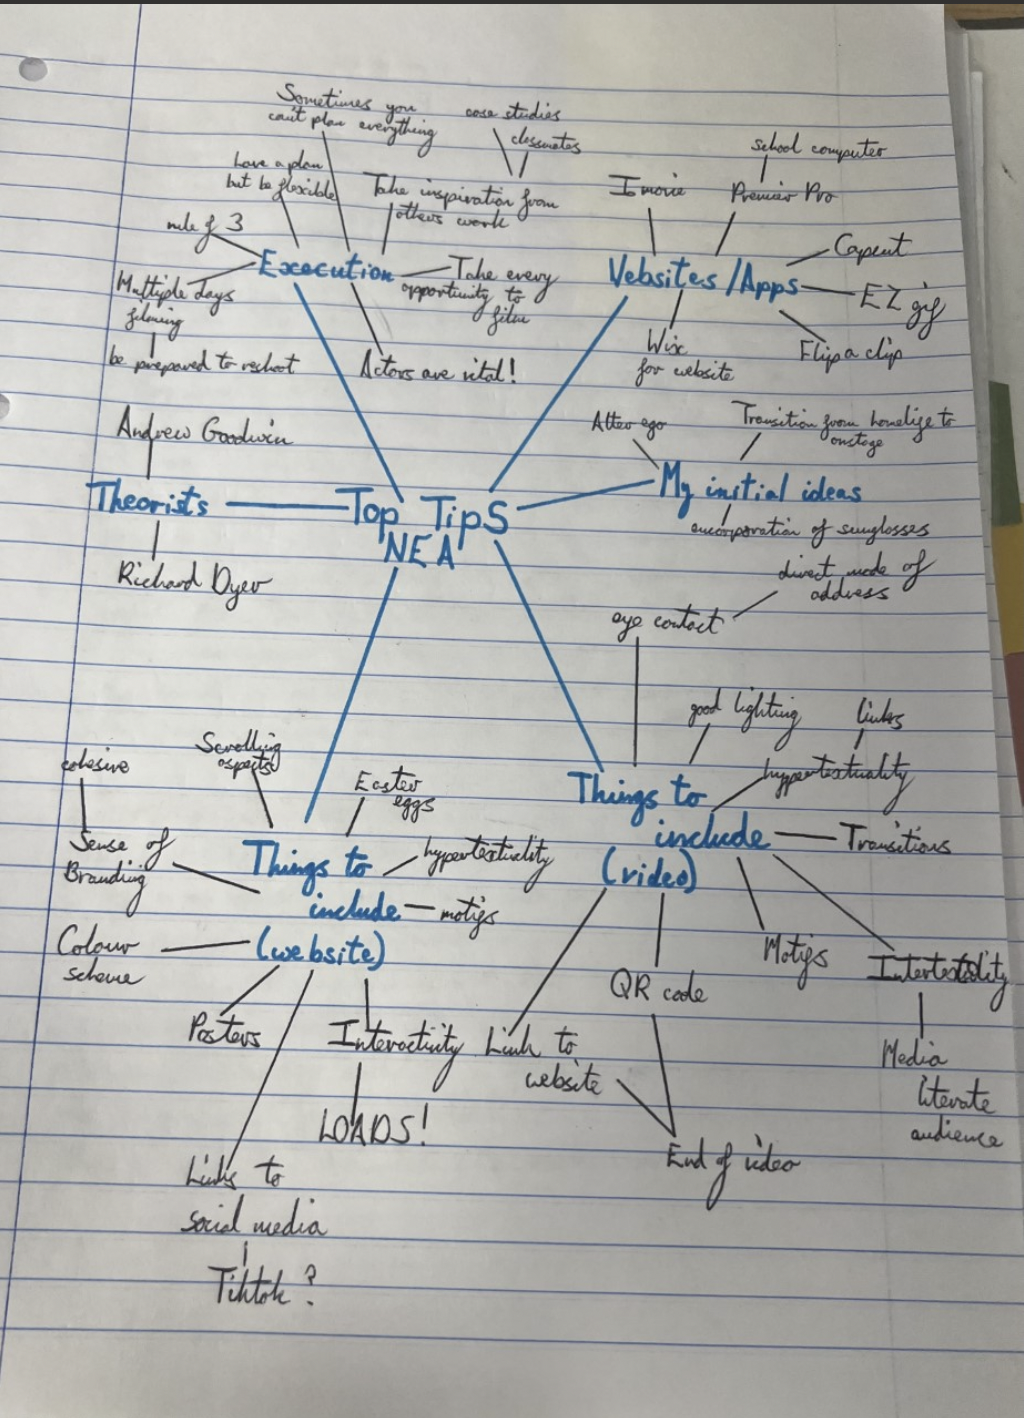 Sometimes you
can't plan everything
case studies
classmates
have a plan
but be flexible
Take inspiration from
others work
rule of 3
Execution
Take every
opportunity to
film
Multiple days
filming
be prepared to reshoot
Actors are vital!
school computer
Imovie
Premier Pro
Websites/Apps
Capcut
EZ gif
Flip a clip
Wix
for website
Andrew Goodwin
Theorists
Richard Dyer
Top Tips
NEA
Alter ego
Transition from homelife to
onstage
My initial ideas
encorporation of sunglasses
direct mode of
address
eye contact
good lighting
links
hypertextuality
Things to
include
(video)
Transitions
Motifs
Intertextuality
Media
literate
audience
QR code
Link to
website
End of video
cohesive
Scrolling
aspects
Easter
eggs
Sense of
Branding
Things to
include
(website)
hypertextuality
motifs
Colour
scheme
Posters
Interactivity
LOADS!
Links to
social media
Tiktok?